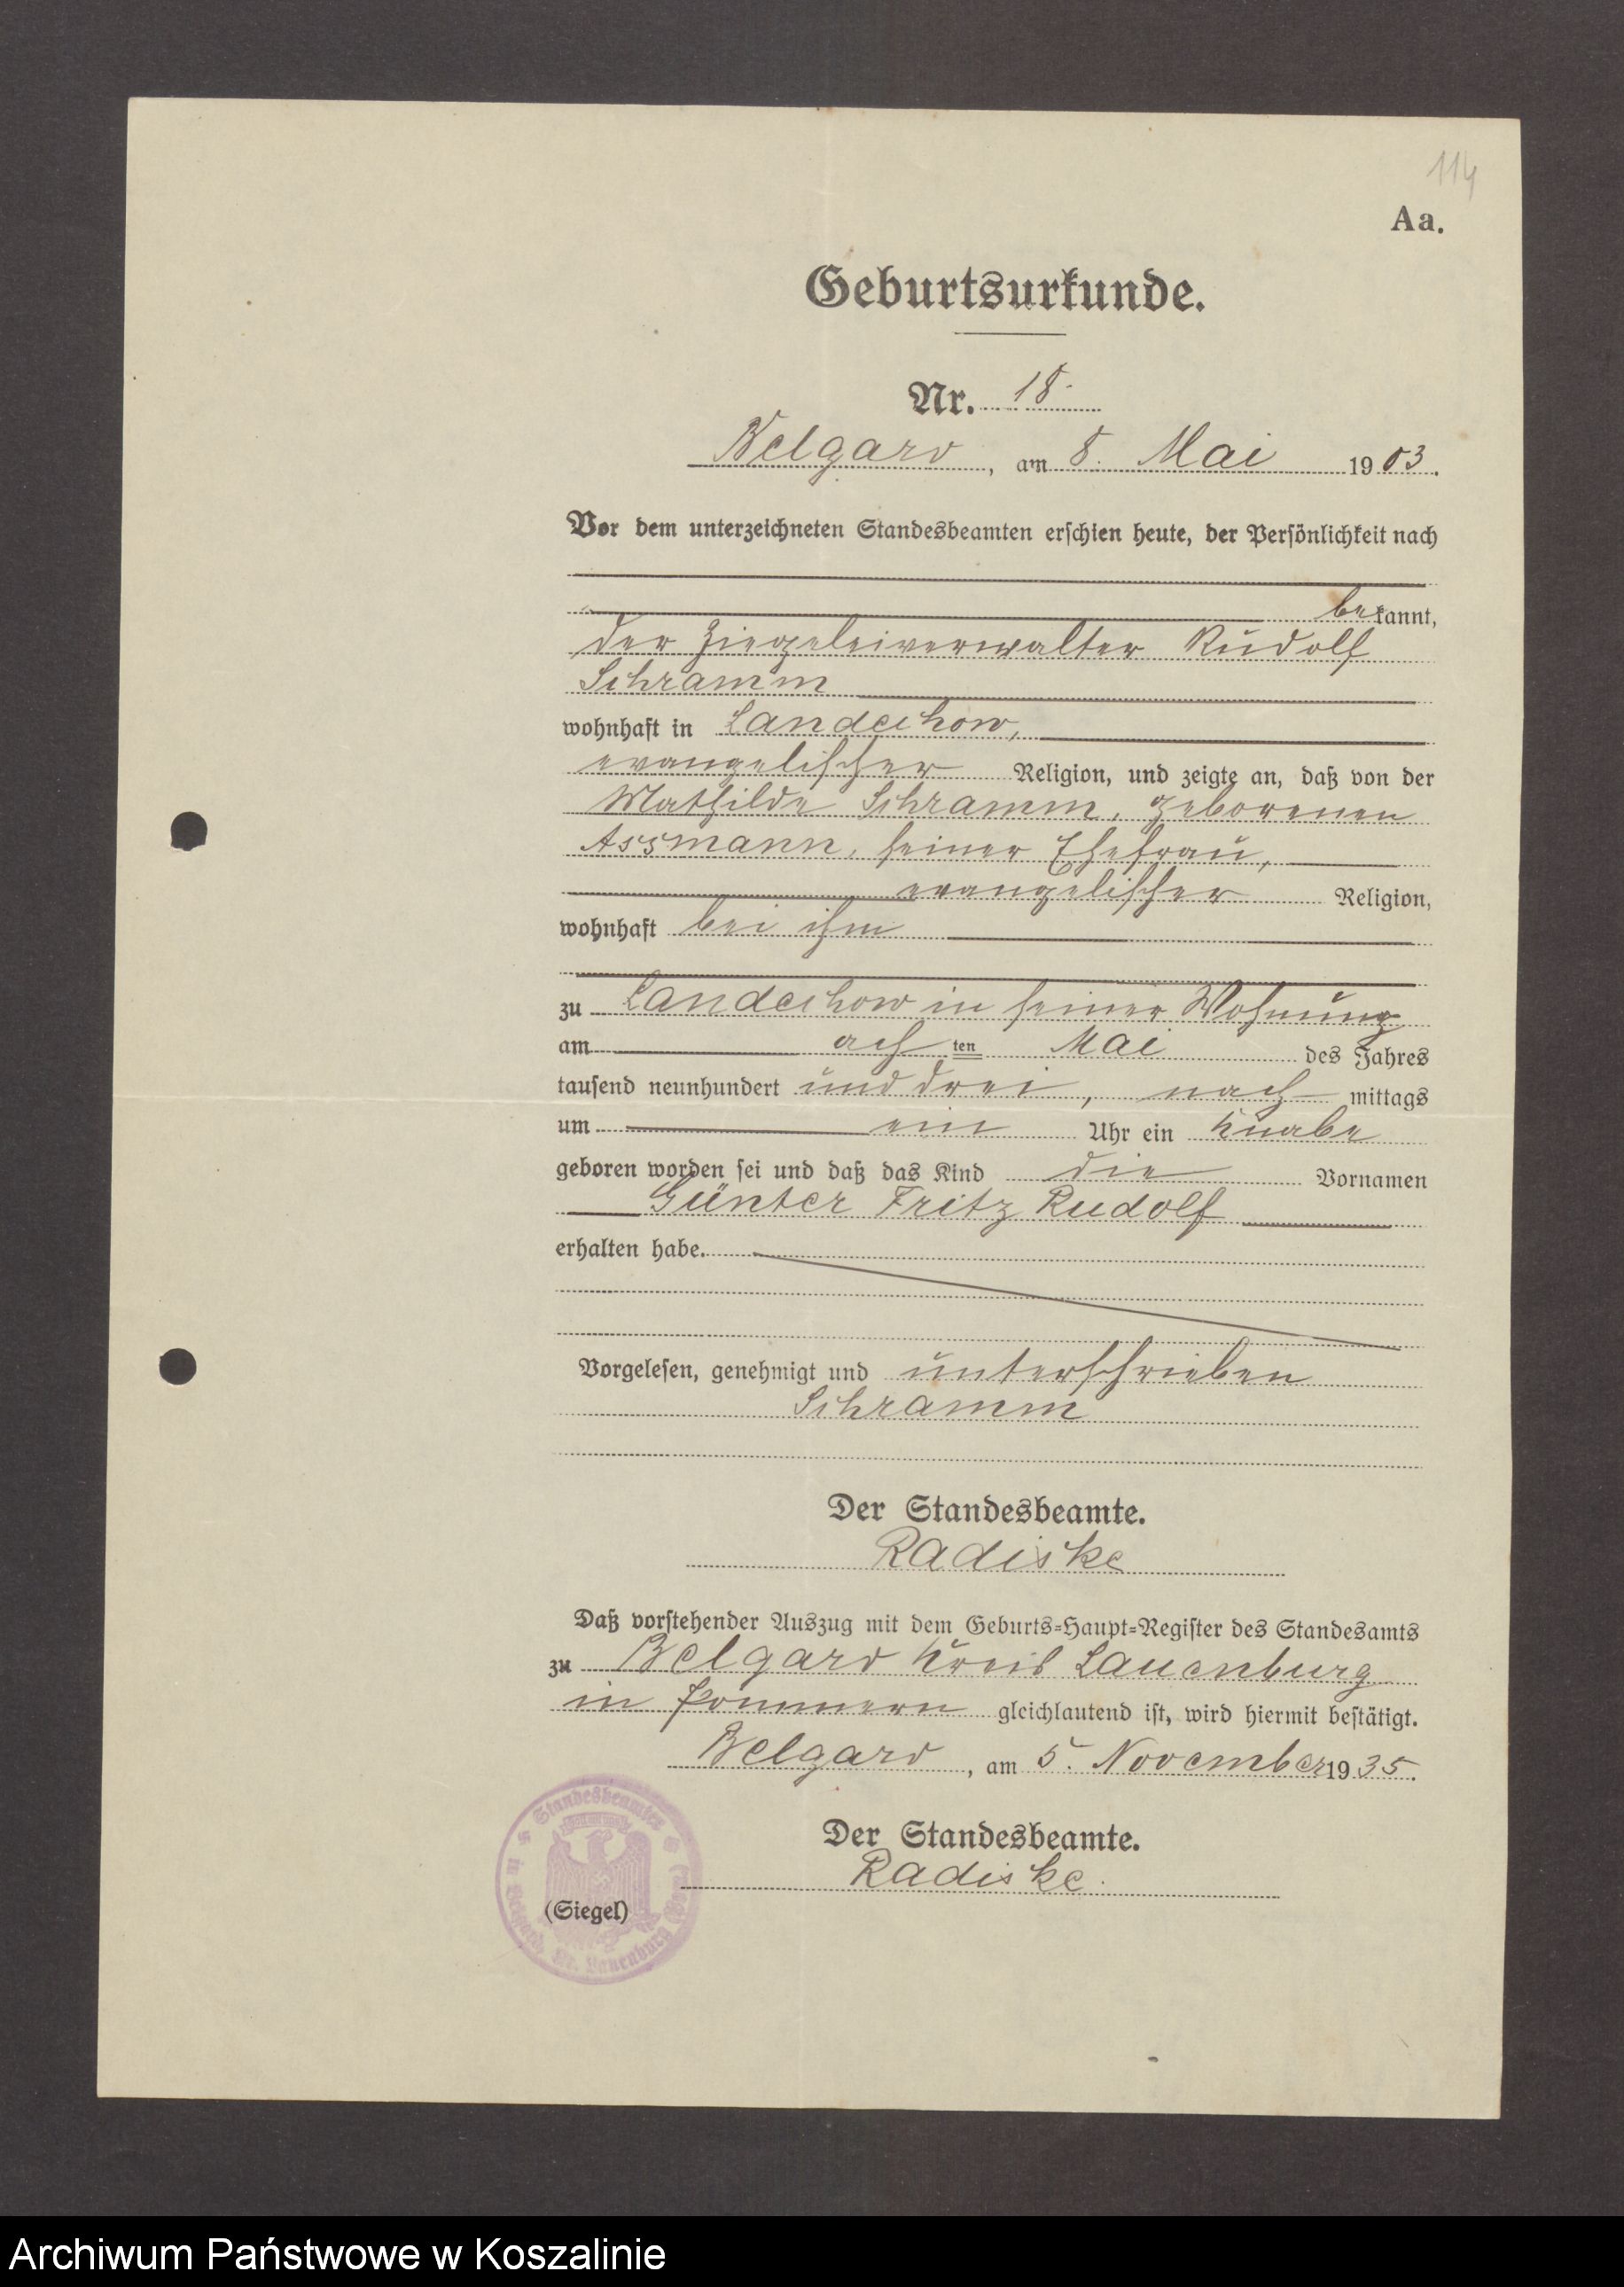 114
Aa.
Geburtsurkunde.
Nr. 18.
Belgard, am 8. Mai 1903.
Vor dem unterzeichneten Standesbeamten erschien heute, der Persönlichkeit nach
bekannt,
der Ziegeleiverwalter Rudolf
Schramm
wohnhaft in Landechow,
evangelischer Religion, und zeigte an, daß von der
Mathilde Schramm, geborenen
Assmann, seiner Ehefrau,
evangelischer Religion,
wohnhaft bei ihm
zu Landechow in seiner Wohnung
am achten Mai des Jahres
tausend neunhundert und drei, nachmittags
um ein Uhr ein Knabe
geboren worden sei und daß das Kind die Vornamen
Günter Fritz Rudolf
erhalten habe.
Vorgelesen, genehmigt und unterschrieben
Schramm
Der Standesbeamte.
Radiske
Daß vorstehender Auszug mit dem Geburts-Haupt-Register des Standesamts
zu Belgard Kreis Lauenburg
in Pommern gleichlautend ist, wird hiermit bestätigt.
Belgard, am 5. November 1935.
Der Standesbeamte.
Radiske.
(Siegel)
Standesbeamter
in Belgard, Kr. Lauenburg
Archiwum Państwowe w Koszalinie